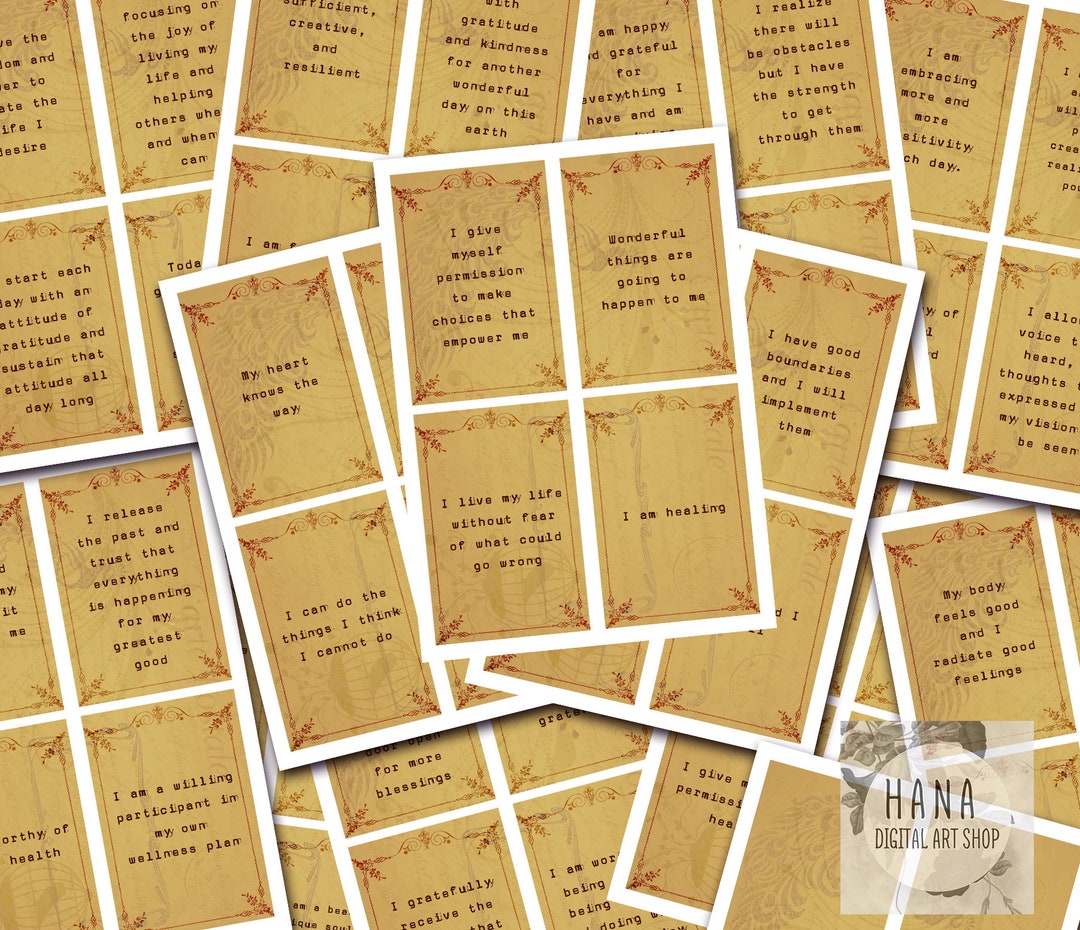 focusing on
the joy of
living my
life and
helping
others whe
and when
can
ve the
dom and
er to
ate the
ife I
desire
sufficient,
creative,
and
resilient
with
gratitude
and kindness
for another
wonderful
day on this
earth
am happy
and grateful
for
everything I
have and am
I realize
there will
be obstacles
but I have
the strength
to get
through them
I am
embracing
more and
more
sitivity
ch day.
start each
day with an
attitude of
ratitude and
sustain that
attitude all
day long
Toda
I am f
I give
myself
permission
to make
choices that
empower me
Wonderful
things are
going to
happen to me
I live my life
without fear
of what could
go wrong
I am healing
My heart
knows the
way
I can do the
things I think
I cannot do
I have good
boundaries
and I will
implement
them
y of
I allo
voice t
heard,
thoughts
expressed
my vision
be seen
I release
the past and
trust that
everything
is happening
for my
greatest
good
my
it
me
I am a willing
participant in
my own
wellness plan
orthy of
health
My body
feels good
and I
radiate good
feelings
door open
for more
blessings
grate
I give m
permiss
hea
I gratefully
receive the
that
I am wor
being
being
am a bea
HANA
DIGITAL ART SHOP